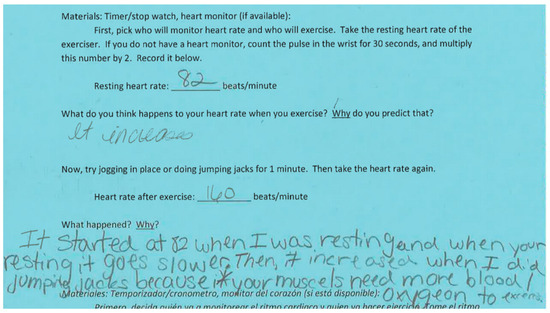 Materials: Timer/stop watch, heart monitor (if available):
First, pick who will monitor heart rate and who will exercise. Take the resting heart rate of the
exerciser. If you do not have a heart monitor, count the pulse in the wrist for 30 seconds, and multiply
this number by 2. Record it below.
Resting heart rate: 82 beats/minute
What do you think happens to your heart rate when you exercise? Why do you predict that?
It increases
Now, try jogging in place or doing jumping jacks for 1 minute. Then take the heart rate again.
Heart rate after exercise: 160 beats/minute
What happened? Why?
It started at 82 when I was resting and when your
resting it goes slower. Then, it increased when I did
jumping jacks because your muscels need more blood/
Materiales: Temporizador/cronometro, monitor del corazón (si está disponible): Oxygeon to
Primero, decida quién va a monitorear el ritmo cardiaco y quien va hacer ejercicio. Tome el ritmo